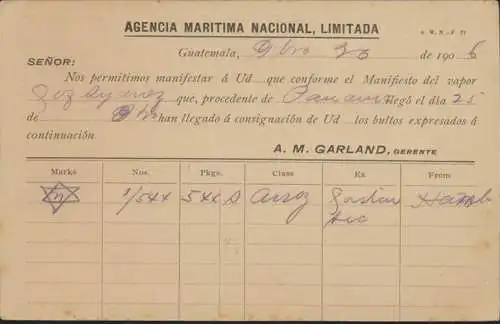 AGENCIA MARITIMA NACIONAL, LIMITADA
Guatemala, 9bro 26 de 1906
SEÑOR:
Nos permitimos manifestar á Ud....que conforme el Manifiesto del vapor
que, procedente de Panamá llegó el dia 25
de han llegado á consignación de Ud....los bultos expresados á
continuación.
A. M. GARLAND, GERENTE
Marks Nos. Pkgs. Class Ex From
1/544 544 S arroz